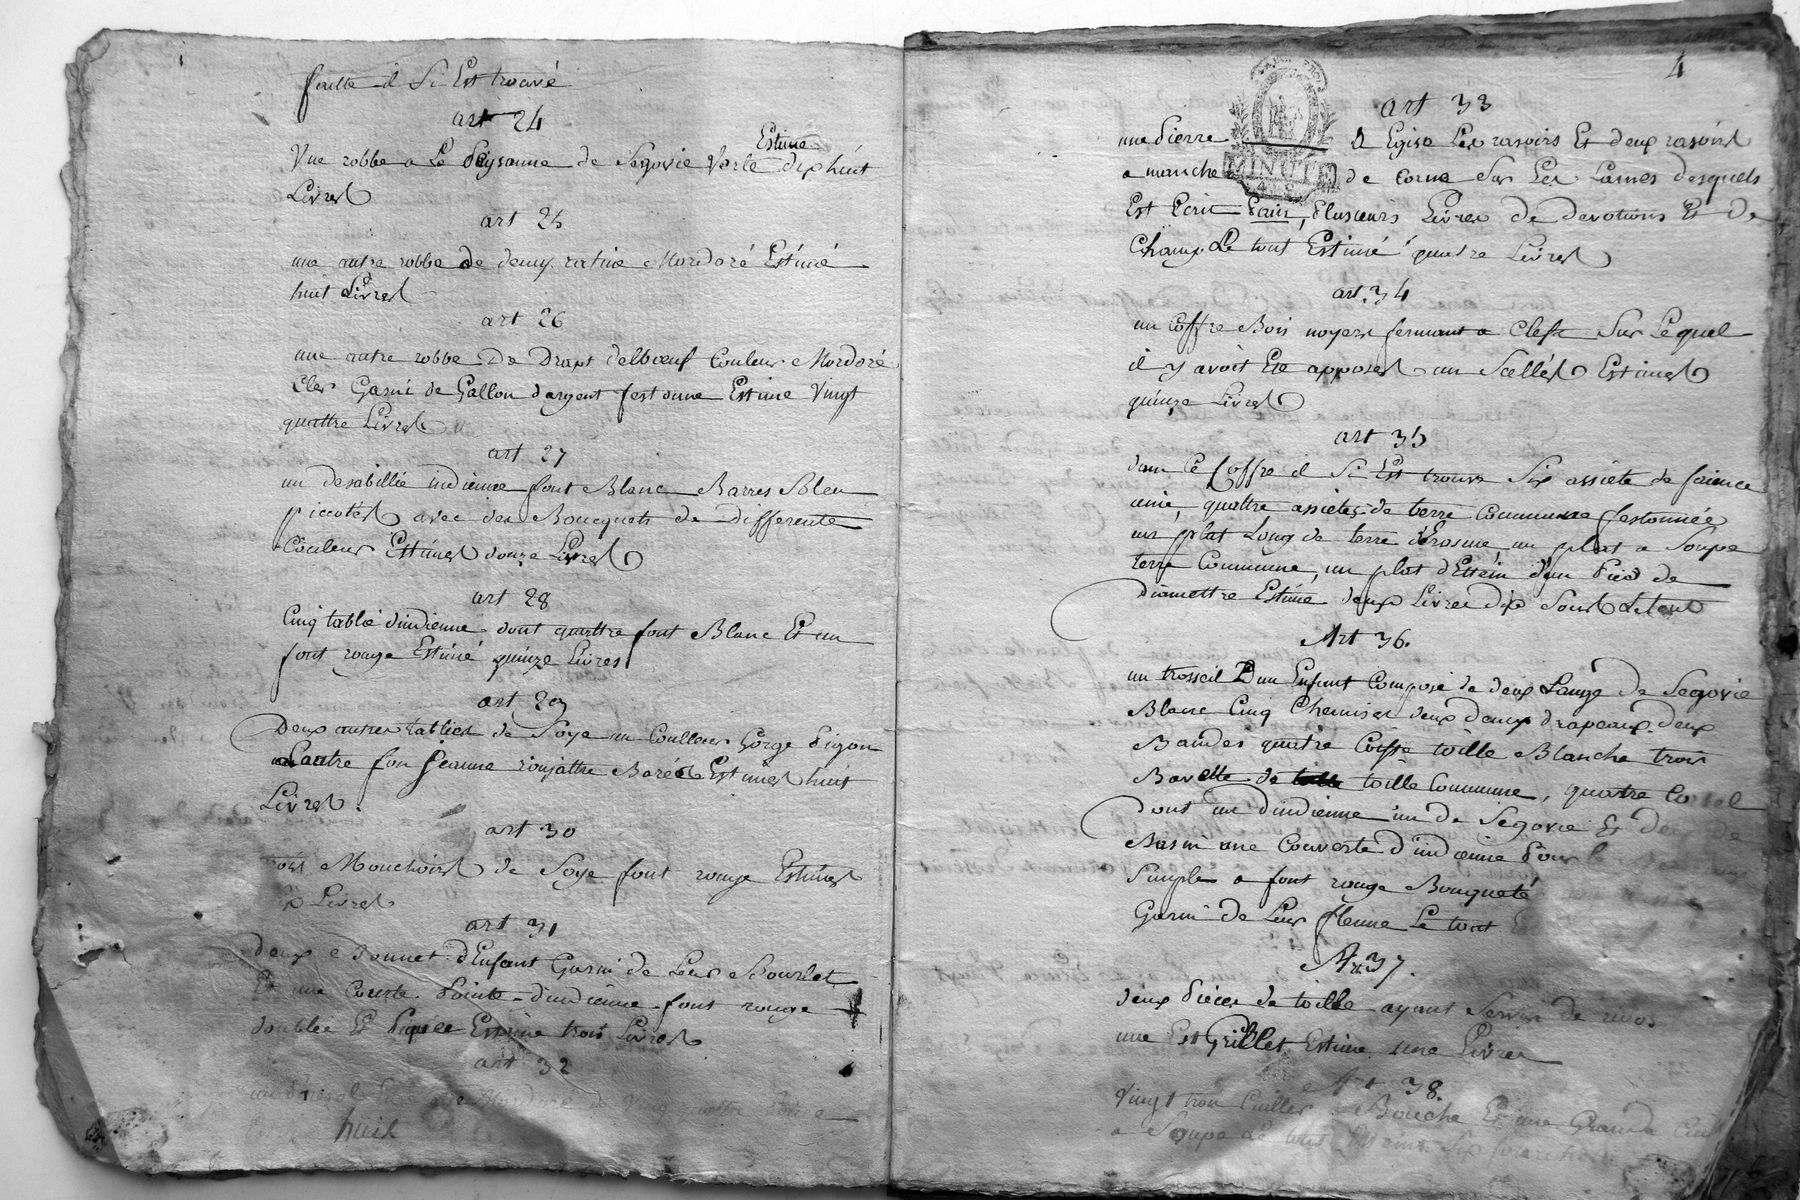 fuitte il Si Est trouvé
art 24
Vne robbe a La Peysanne de Segovie Verte Estime dix huit
Livres
art 25
une autre robbe de demy ratine Mordoré Estimé
huit Livres
art 26
une autre robbe De Drapt delbœuf Couleur Mordoré
Cler Garni de Gallon dargent festonne Estime Vingt
quattre Livres
art 27
un desabillié indienne font Blanc Barres Bleu
piccotés avec des Boucquets de differente
Couleur Estimés douze Livres
art 28
Cinq tablié dindienne dont quattre font Blanc Et un
font rouge Estimé quinze Livres
art 29
Deux autres tabliers de Soye un Coulleur Gorge Pigon
Lautre fon Jeaune roujattre Baré Estimés huit
Livres
art 30
trois Mouchoirs de Soye font rouge Estimés
Livres
art 31
deux Bonnet d'Enfant Garni de Leur Bourlet
Et une Couverte Pointe dindienne font rouge
doublée Et Piquée Estime trois Livres
art 32
Mordoré
huit
4
art 33
une Pierre A Egiser Les rasoirs Et deux rasoirs
a manche de Corne Sur Les Lames desquels
Est Ecrit Pain, Plusieurs Livres de devotions Et de
Champ Le tout Estimé quatre Livres
MINUTE
art. 34
un Coffre Bois noyer fermant a Clefs Sur Lequel
il y avoit Ete apposés un Scellés Estimés
quinze Livres
art 35
dans Ce Coffre il Si Est trouvé Six assiete de faience
unie, quattre assietes de terre Commune festonnée
un plat Long de terre d'Erosme, un plat a Soupe
terre Commune, un plat d'Ettein d'un Pied de
diamettre Estimé deux Livres dix Sous Le tout
Art 36.
un trosseil D un Enfant Composé de deux Lange de Segovie
Blanc Cinq Chemises deux drapeaux deux
Bandes quatre Coiffe toille Blanche trois
Bavette de toille Commune, quatre
dont un dindienne un de Segovie Et
Basin une Couverte d'indienne Pour
Simple a font rouge Bouqueté
Garni de Leur flenne Le tout
Art 37.
deux Pieces de toille ayant Servir de
une Est Grillet Estime une Livres
Art 38.
Vingt trois Cuillers Bouche Et une Grande
a Soupe Le tout